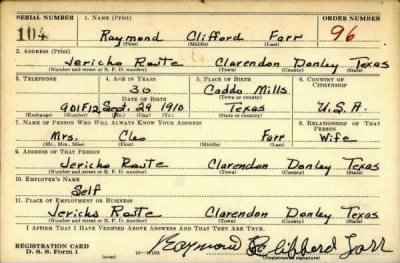 SERIAL NUMBER 1. NAME (Print) ORDER NUMBER
104 Raymond Clifford Farr 96
(First) (Middle) (Last)
2. ADDRESS (Print)
Jericho Route Clarendon Donley Texas
(Number and street or R. F. D. number) (Town) (County) (State)
3. TELEPHONE 4. AGE IN YEARS 5. PLACE OF BIRTH 6. COUNTRY OF CITIZENSHIP
30 Caddo Mills
DATE OF BIRTH (Town or county)
901F12 Sept. 29 1910 Texas U.S.A.
(Exchange) (Number) (Mo.) (Day) (Yr.) (State or country)
7. NAME OF PERSON WHO WILL ALWAYS KNOW YOUR ADDRESS 8. RELATIONSHIP OF THAT PERSON
Mrs. Cleo Farr Wife
(Mr., Mrs., Miss) (First) (Middle) (Last)
9. ADDRESS OF THAT PERSON
Jericho Route Clarendon Donley Texas
(Number and street or R. F. D. number) (Town) (County) (State)
10. EMPLOYER'S NAME
Self
11. PLACE OF EMPLOYMENT OR BUSINESS
Jericho Route Clarendon Donley Texas
(Number and street or R. F. D. number) (Town) (County) (State)
I AFFIRM THAT I HAVE VERIFIED ABOVE ANSWERS AND THAT THEY ARE TRUE.
REGISTRATION CARD
D. S. S. Form 1 (over) Raymond Clifford Farr
(Registrant's signature)